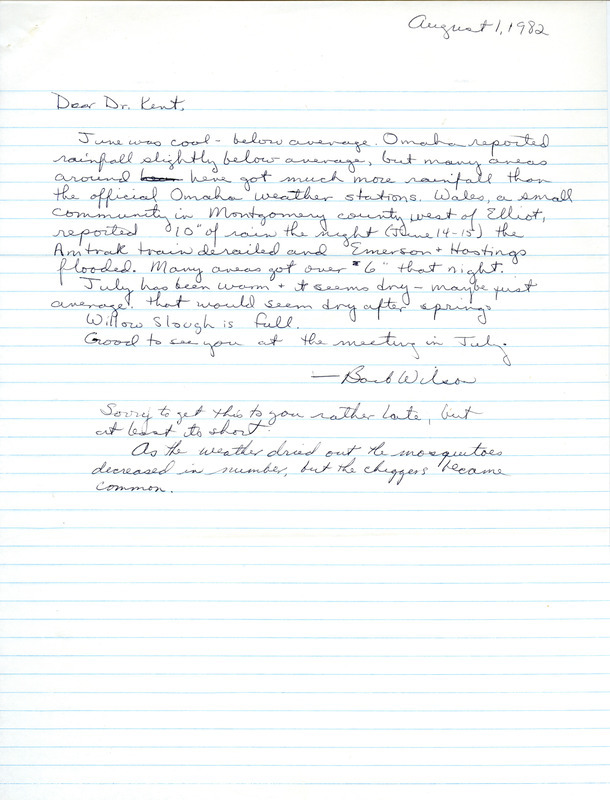 August 1, 1982
Dear Dr. Kent,
June was cool - below average. Omaha reported
rainfall slightly below average, but many areas
around here got much more rainfall than
the official Omaha weather stations. Wales, a small
community in Montgomery county west of Elliot,
reported 10" of rain the night (June 14-15) the
Amtrak train derailed and Emerson + Hastings
flooded. Many areas got over 6" that night.
July has been warm + it seems dry - maybe just
average. that would seem dry after springs
Willow Slough is full.
Good to see you at the meeting in July.
— Barb Wilson
Sorry to get this to you rather late, but
at least its short.
As the weather dried out the mosquitoes
decreased in number, but the chiggers became
common.